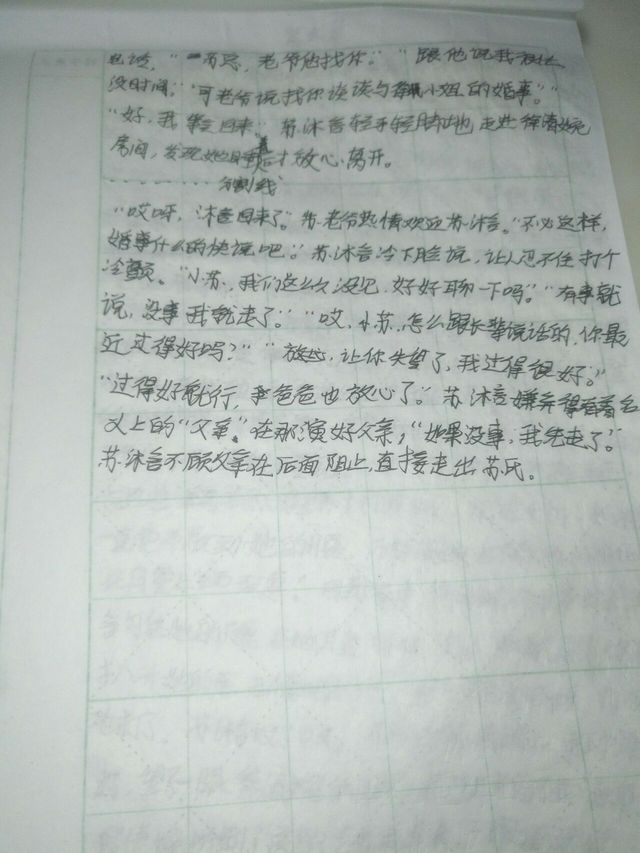 电话，“苏总，老爷他找你。”“跟他说我没
没时间。”“可老爷说找你谈谈与小姐的婚事。”
“好，我会回来。”苏沐言轻手轻脚地走进徐清婉
房间，发现她后才放心离开。
……分割线
“哎呀，沐言回来了。”苏老爷热情欢迎苏沐言。“不必这样，
婚事什么的快说吧。”苏沐言冷下脸说，让人忍不住打个
冷颤。“小苏，我们这么久没见，好好聊一下吗。”“有事就
说，没事我就走了。”“哎，小苏，怎么跟长辈说话的，你最
近过得好吗？”“放心，让你失望了，我过得很好。”
“过得好就行，爸爸也放心了。”苏沐言嫌弃得看着名
义上的“父亲”在那演好父亲，“如果没事，我先走了。”
苏沐言不顾父亲在后面阻止，直接走出苏氏。